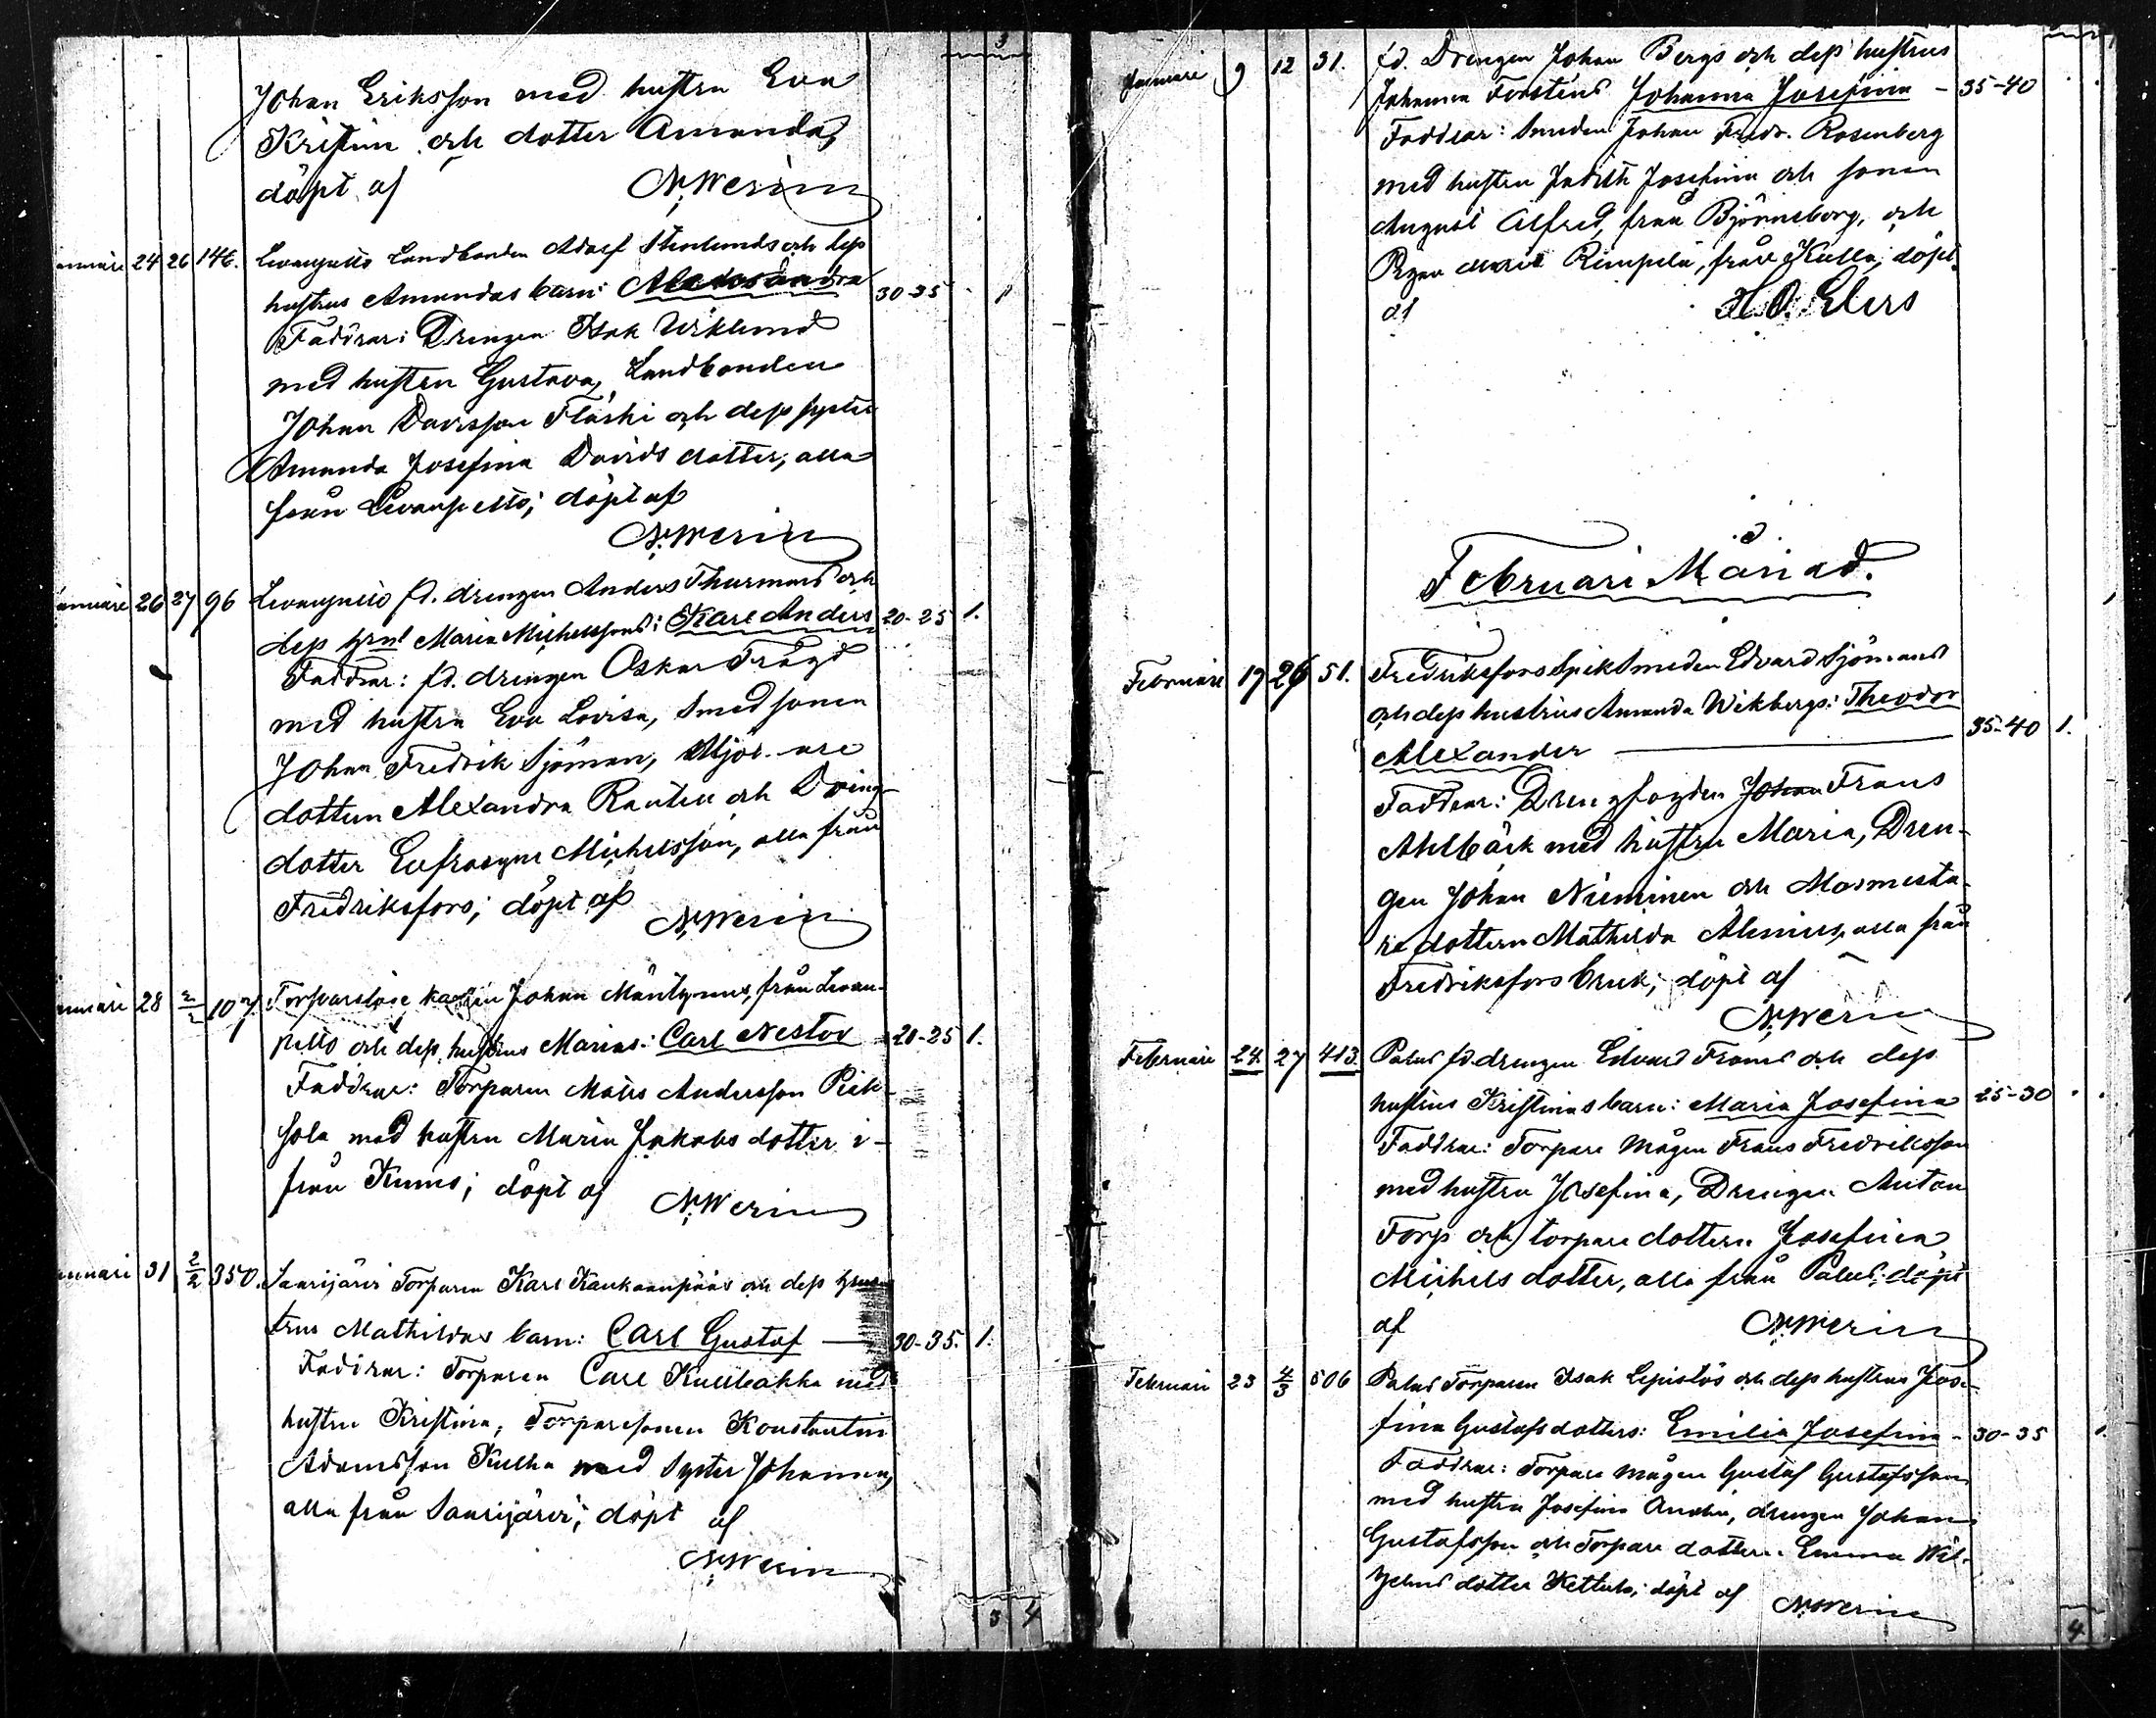 3
Johan Eriksson med hustru Eva
Kristin och dotter Amanda,
döpt af N. Werin
Januari 24 26 146. Levanpelto Landbonden Adolf Stenlunds och dess
hustrus Amandas barn: Alexandra 30-35 1
Faddrar: Drengen Isak Wiklund
med hustru Gustava, Landbonden
Johan Davidsson Flaski och dess syster
Amanda Josefina Davids dotter, alla
från Levanpelto; döpt af
N. Werin
Januari 26 27 96 Levanpelto fd. drengen Anders Thurmans och
dess hru Maria Michelssons: Karl Anders 20-25 1.
Faddrar: fd. drengen Oskar Frägd
med hustru Eva Lovisa, Smedsonen
Johan Fredrik Sjöman, Mjölnare
dottern Alexandra Rauten och Dräng-
dotter Eufrosyne Michelsson, alla från
Fredriksfors; döpt af N. Werin
Januari 28 2/2 107. Torpareloge karlen Johan Mäntynens, från Levan-
pelto och dess hustrus Marias: Carl Nestor 20-25 1.
Faddrar: Torparen Matts Andersson Piik-
sola med hustru Maria Jakobs dotter i-
från Kumo; döpt af N. Werin
Januari 31 2/2 350. Saarijärvi Torparen Karl Kankaanpääs och dess hus-
trus Mathildas barn: Carl Gustaf 30-35. 1.
Faddrar: Torparen Carl Kullbakka med
hustru Kristina, Torparesonen Konstantin
Adamsson Kullka med Syster Johanna,
alla från Saarijärvi; döpt af
N. Werin
3 4
Januari 9 12 31. fd. Drengen Johan Bergs och dess hustrus
Johanna Forsténs Johanna Josefina - 35-40
Faddrar: Smeden Johan Fredr. Rosenberg
med hustru Judith Josefina och sonen
August Alfred, från Björneborg, och
Pigan Maria Rimpelä, från Kulla; döpt
af H. O. Elers
Februari Månad.
Februari 19 26 51. Fredriksfors Spiksmeden Edvard Sjömans
och dess hustrus Amanda Wikbergs: Theodor
Alexander 35-40 1.
Faddrar: Drengfogden Johan Frans
Ahlbäck med hustru Maria, Dren-
gen Johan Nieminen och Masmästa-
re dottern Mathilda Alenius, alla från
Fredriksfors bruk; döpt af
N. Werin
Februari 24. 27 413. Palus fd. drengen Edvard Frans och dess
hustrus Kristinas barn: Maria Josefina 25-30
Faddrar: Torpare mågen Frans Fredriksson
med hustru Josefina, Drengen Anton
Torp och torpare dottern Josefina
Michels dotter, alla från Palus; döpt
af N. Werin
Februari 23 4/3 506 Palus Torparen Isak Lepistös och dess hustrus Jose-
fina Gustafsdotters: Emilia Josefina - 30-35 1.
Faddrar: Torpare mågen Gustaf Gustafsson
med hustru Josefina, drengen Johan
Gustafsson och Torpare dottern Emma Wil-
helms dotter Kettula; döpt af N. Werin
4